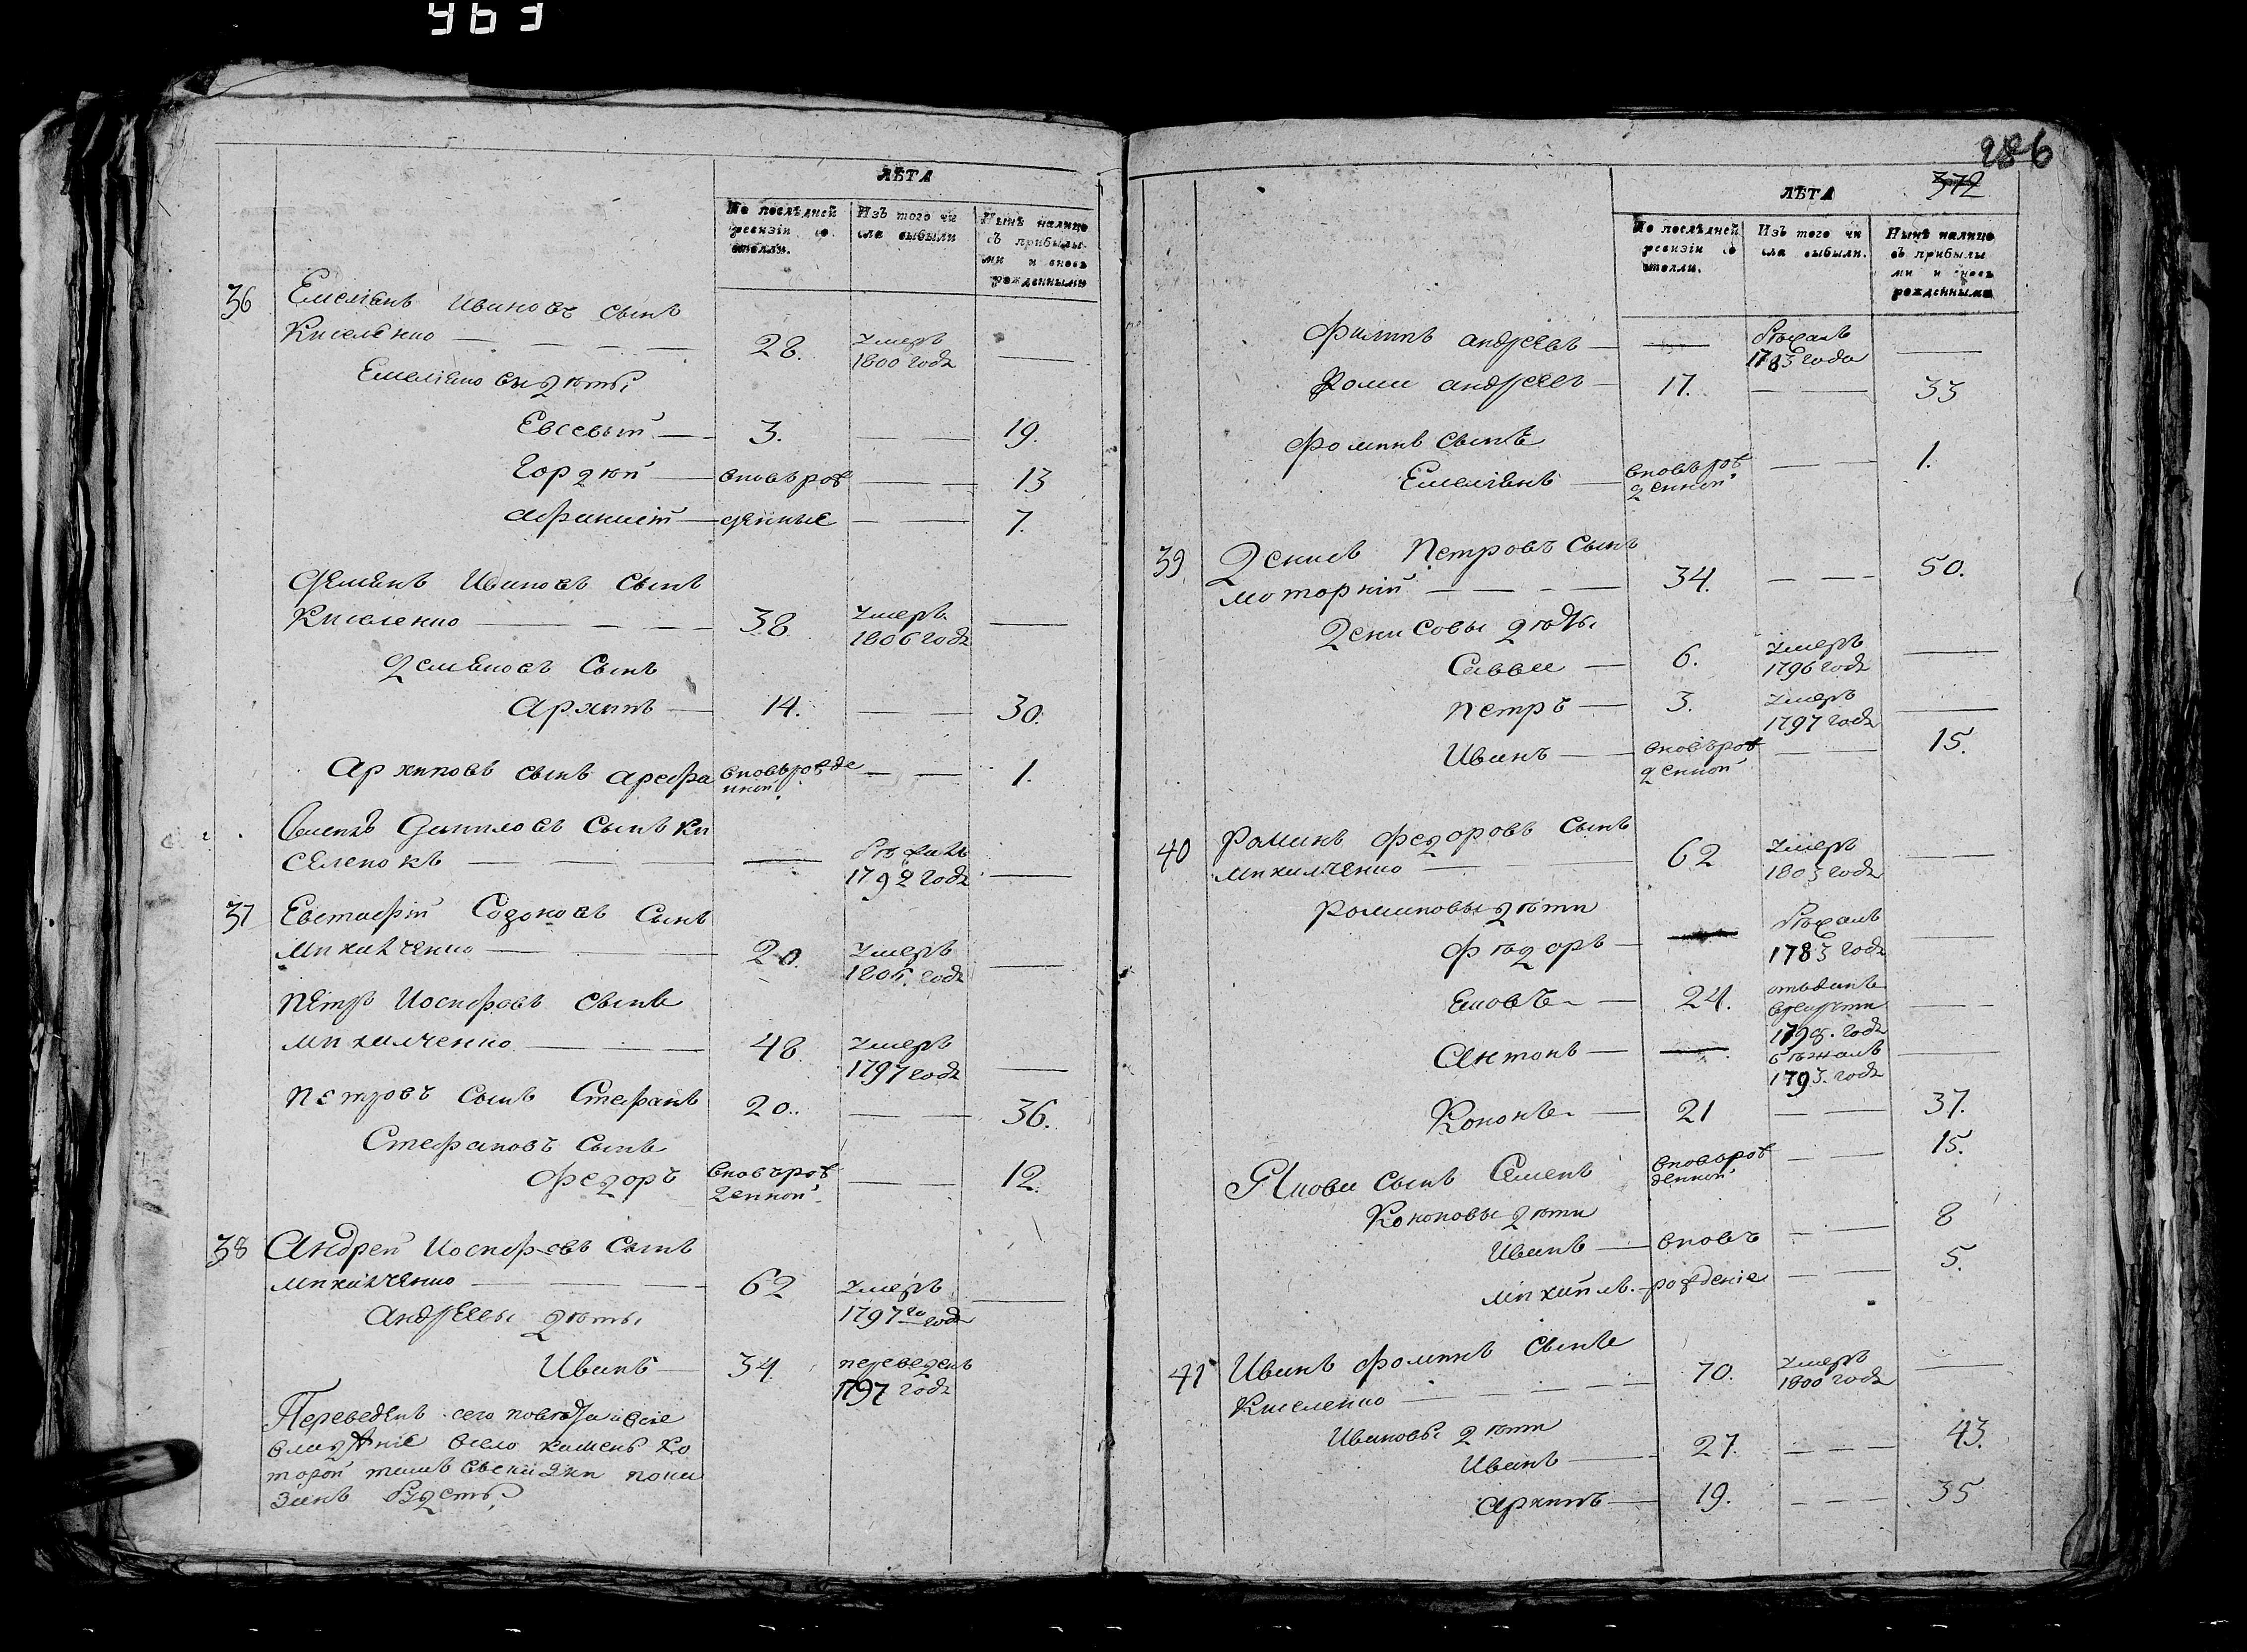 963
ЛѢТА
По послѣдней ревизіи состояли.
Изъ того числа выбыли
Нынѣ налицо съ прибылыми и вновь рожденными
36 Емелiянъ Ивановъ сынъ
Киселенко — 28. умеръ 1800 годꙋ —
Емелiяновы дѣты
Евсевый — 3. — 19.
Гордѣй — вновьрож — 13
Афанасiй — денные — 7.
Демянъ Ивановъ сынъ
Киселенко — 38. умеръ 1806 годꙋ —
Демяновъ сынъ
Архипъ — 14. — 30.
Архиповъ сынъ Арефа вновьрожденной — 1.
Семенъ Даниловъ сынъ Ки
селенокъ — 1792 годꙋ —
37 Евстафiй Созоновъ сынъ
Михалченко — 20. умеръ 1806. годꙋ —
Петръ Иосифовъ сынъ
Михалченко — 48. умеръ 1797 годꙋ —
Петровъ сынъ Стефанъ 20. — 36.
Стефановъ сынъ
Федоръ вновьрожденной — 12.
38 Андрей Иосифовъ сынъ
Михалченко — 62 умеръ 1797го годꙋ —
Андреевы дѣты
Иванъ — 34. переведенъ 1797 годꙋ
Переведенъ сего
село камень ко
торой тамъ пока
занъ бꙋдетъ
286
372
ЛѢТА
По послѣдней ревизіи состояли.
Изъ того числа выбыли.
Нынѣ налицо съ прибылыми и вновь рожденными
Филипъ Андреевъ — 1783 года —
Фома Андреевъ — 17. — 33
Фоминъ сынъ
Емелiянъ — вновьрожденной — 1.
39. Денисъ Петровъ сынъ
Моторнiй — 34. — 50.
Денисовы дѣты
Савва — 6. умеръ 1796 годꙋ —
Петръ — 3. умеръ 1797 годꙋ —
Иванъ — вновьрожденной — 15.
40 Романъ Федоровъ сынъ
Михалченко — 62 умеръ 1803 годꙋ —
Романовы дѣти
Фѣдоръ — 1783 годꙋ —
Яковъ — 24. отъданъ врекруты годꙋ —
Антонъ — бѣжалъ 1793. годꙋ —
Кононъ — 21 — 37.
Якова сынъ Семенъ вновьрожденной — 15.
Кононовы дѣти
Иванъ — вновь — 8
Михайлъ — рожденiе — 5.
41 Иванъ Фоминъ сынъ
Киселенко — 70. умеръ 1800 годꙋ —
Ивановы дѣти
Иванъ — 27. — 43.
Архипъ — 19. — 35